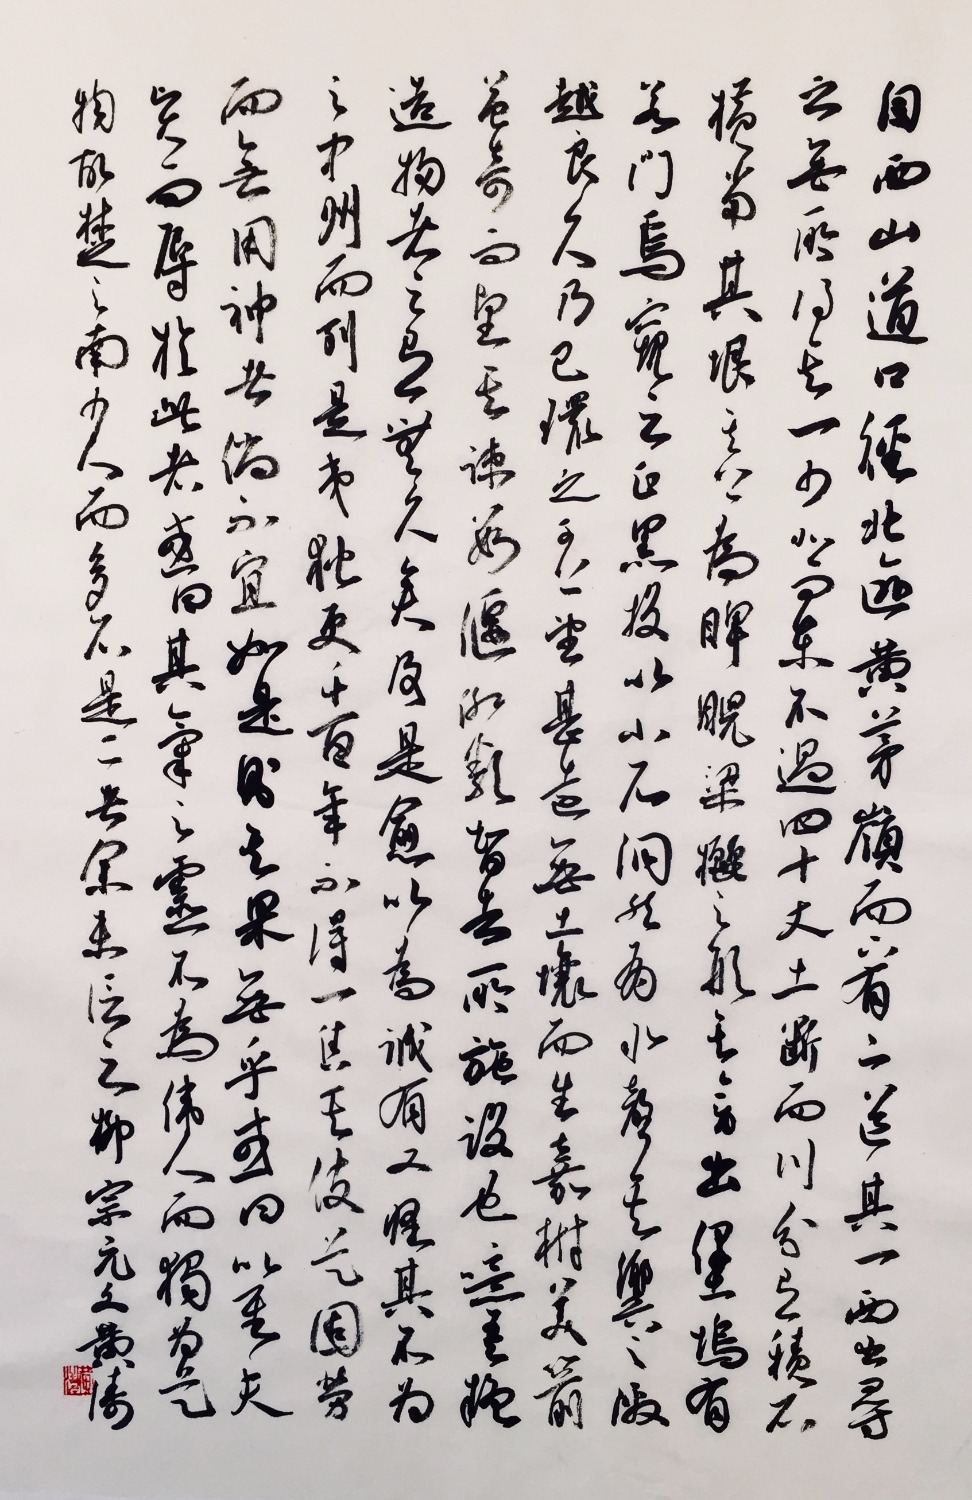 自西山道口徑北逾黄茅嶺而下有二道其一西出尋
之無所得其一少北而東不過四十丈土斷而川分有積石
橫當其垠其上為睥睨梁欐之形其旁出堡塢有
若門焉窺之正黑投以小石洞然有水聲其響之激
越良久乃已環之可上望甚遠無土壤而生嘉樹美箭
益奇而堅其疎數偃仰類智者所施設也噫吾疑
造物者之有無久矣及是愈以為誠有又怪其不為
之中州而列是夷狄更千百年不得一售其伎是固勞
而無用神者倘不宜如是則其果無乎或曰以慰夫
賢而辱於此者或曰其氣之靈不為偉人而獨為是
物故楚之南少人而多石是二者余未信之柳宗元文黄濤